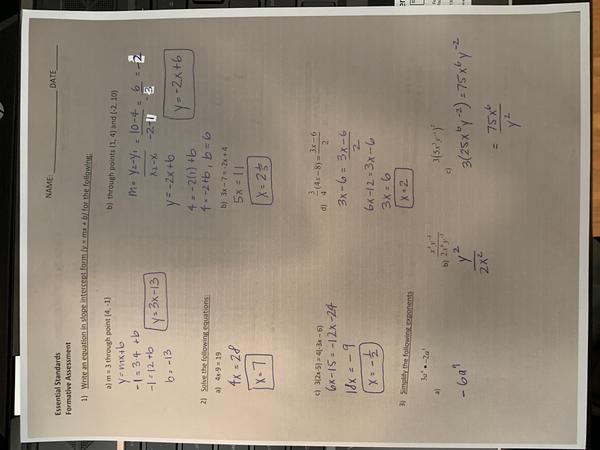 NAME: DATE
Essential Standards
Formative Assessment
1) Write an equation in slope intercept form (y = mx + b) for the following:
a) m = 3 through point (4, -1)
y=mx+b
-1=3·4+b
-1=12+b
b=-13
y=3x-13
b) through points (1, 4) and (-2, 10)
m = y₂-y₁ = 10-4 = 6 = -2
x₂-x₁ -2-1 -3
y=-2x+b
4=-2(1)+b
4=-2+b, b=6
y=-2x+6
2) Solve the following equations:
a) 4x-9 = 19
4x=28
x=7
b) 3x – 7 = -2x + 4
5x=11
x=2⅕
c) 3(2x-5) = 4(-3x – 6)
6x-15=-12x-24
18x=-9
x=-½
d) ¾(4x – 8) = 3x – 6
2
3x-6=3x-6
2
6x-12=3x-6
3x=6
x=2
3) Simplify the following exponents
a) 3a⁴ • -2a³
-6a⁷
b)
y²
2x²
c) 3(5x³y⁻¹)²
3(25x⁶y⁻²)=75x⁶y⁻²
= 75x⁶
y²